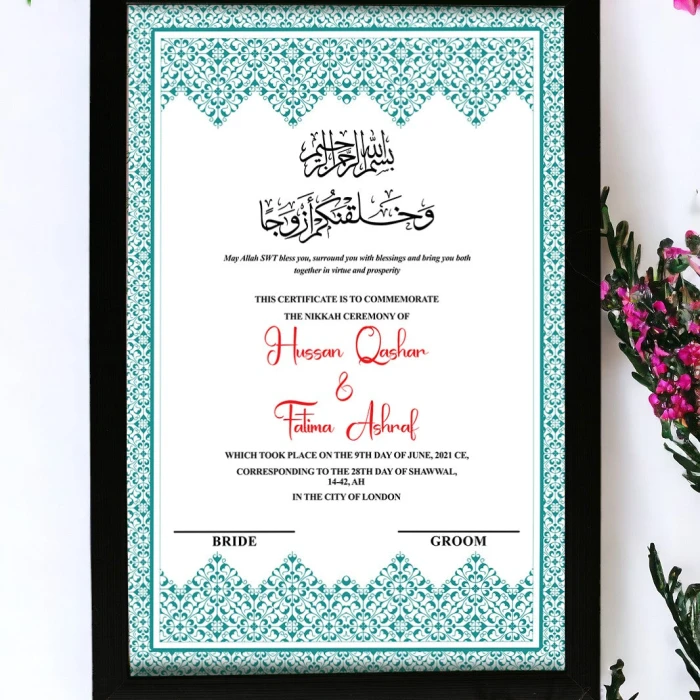 بسم الله الرحمن الرحيم
وَخَلَقْنَٰكُمْ أَزْوَٰجًا
May Allah SWT bless you, surround you with blessings and bring you both
together in virtue and prosperity
THIS CERTIFICATE IS TO COMMEMORATE
THE NIKKAH CEREMONY OF
Hussan Qashar
&
Fatima Ashraf
WHICH TOOK PLACE ON THE 9TH DAY OF JUNE, 2021 CE,
CORRESPONDING TO THE 28TH DAY OF SHAWWAL,
14-42, AH
IN THE CITY OF LONDON
BRIDE GROOM